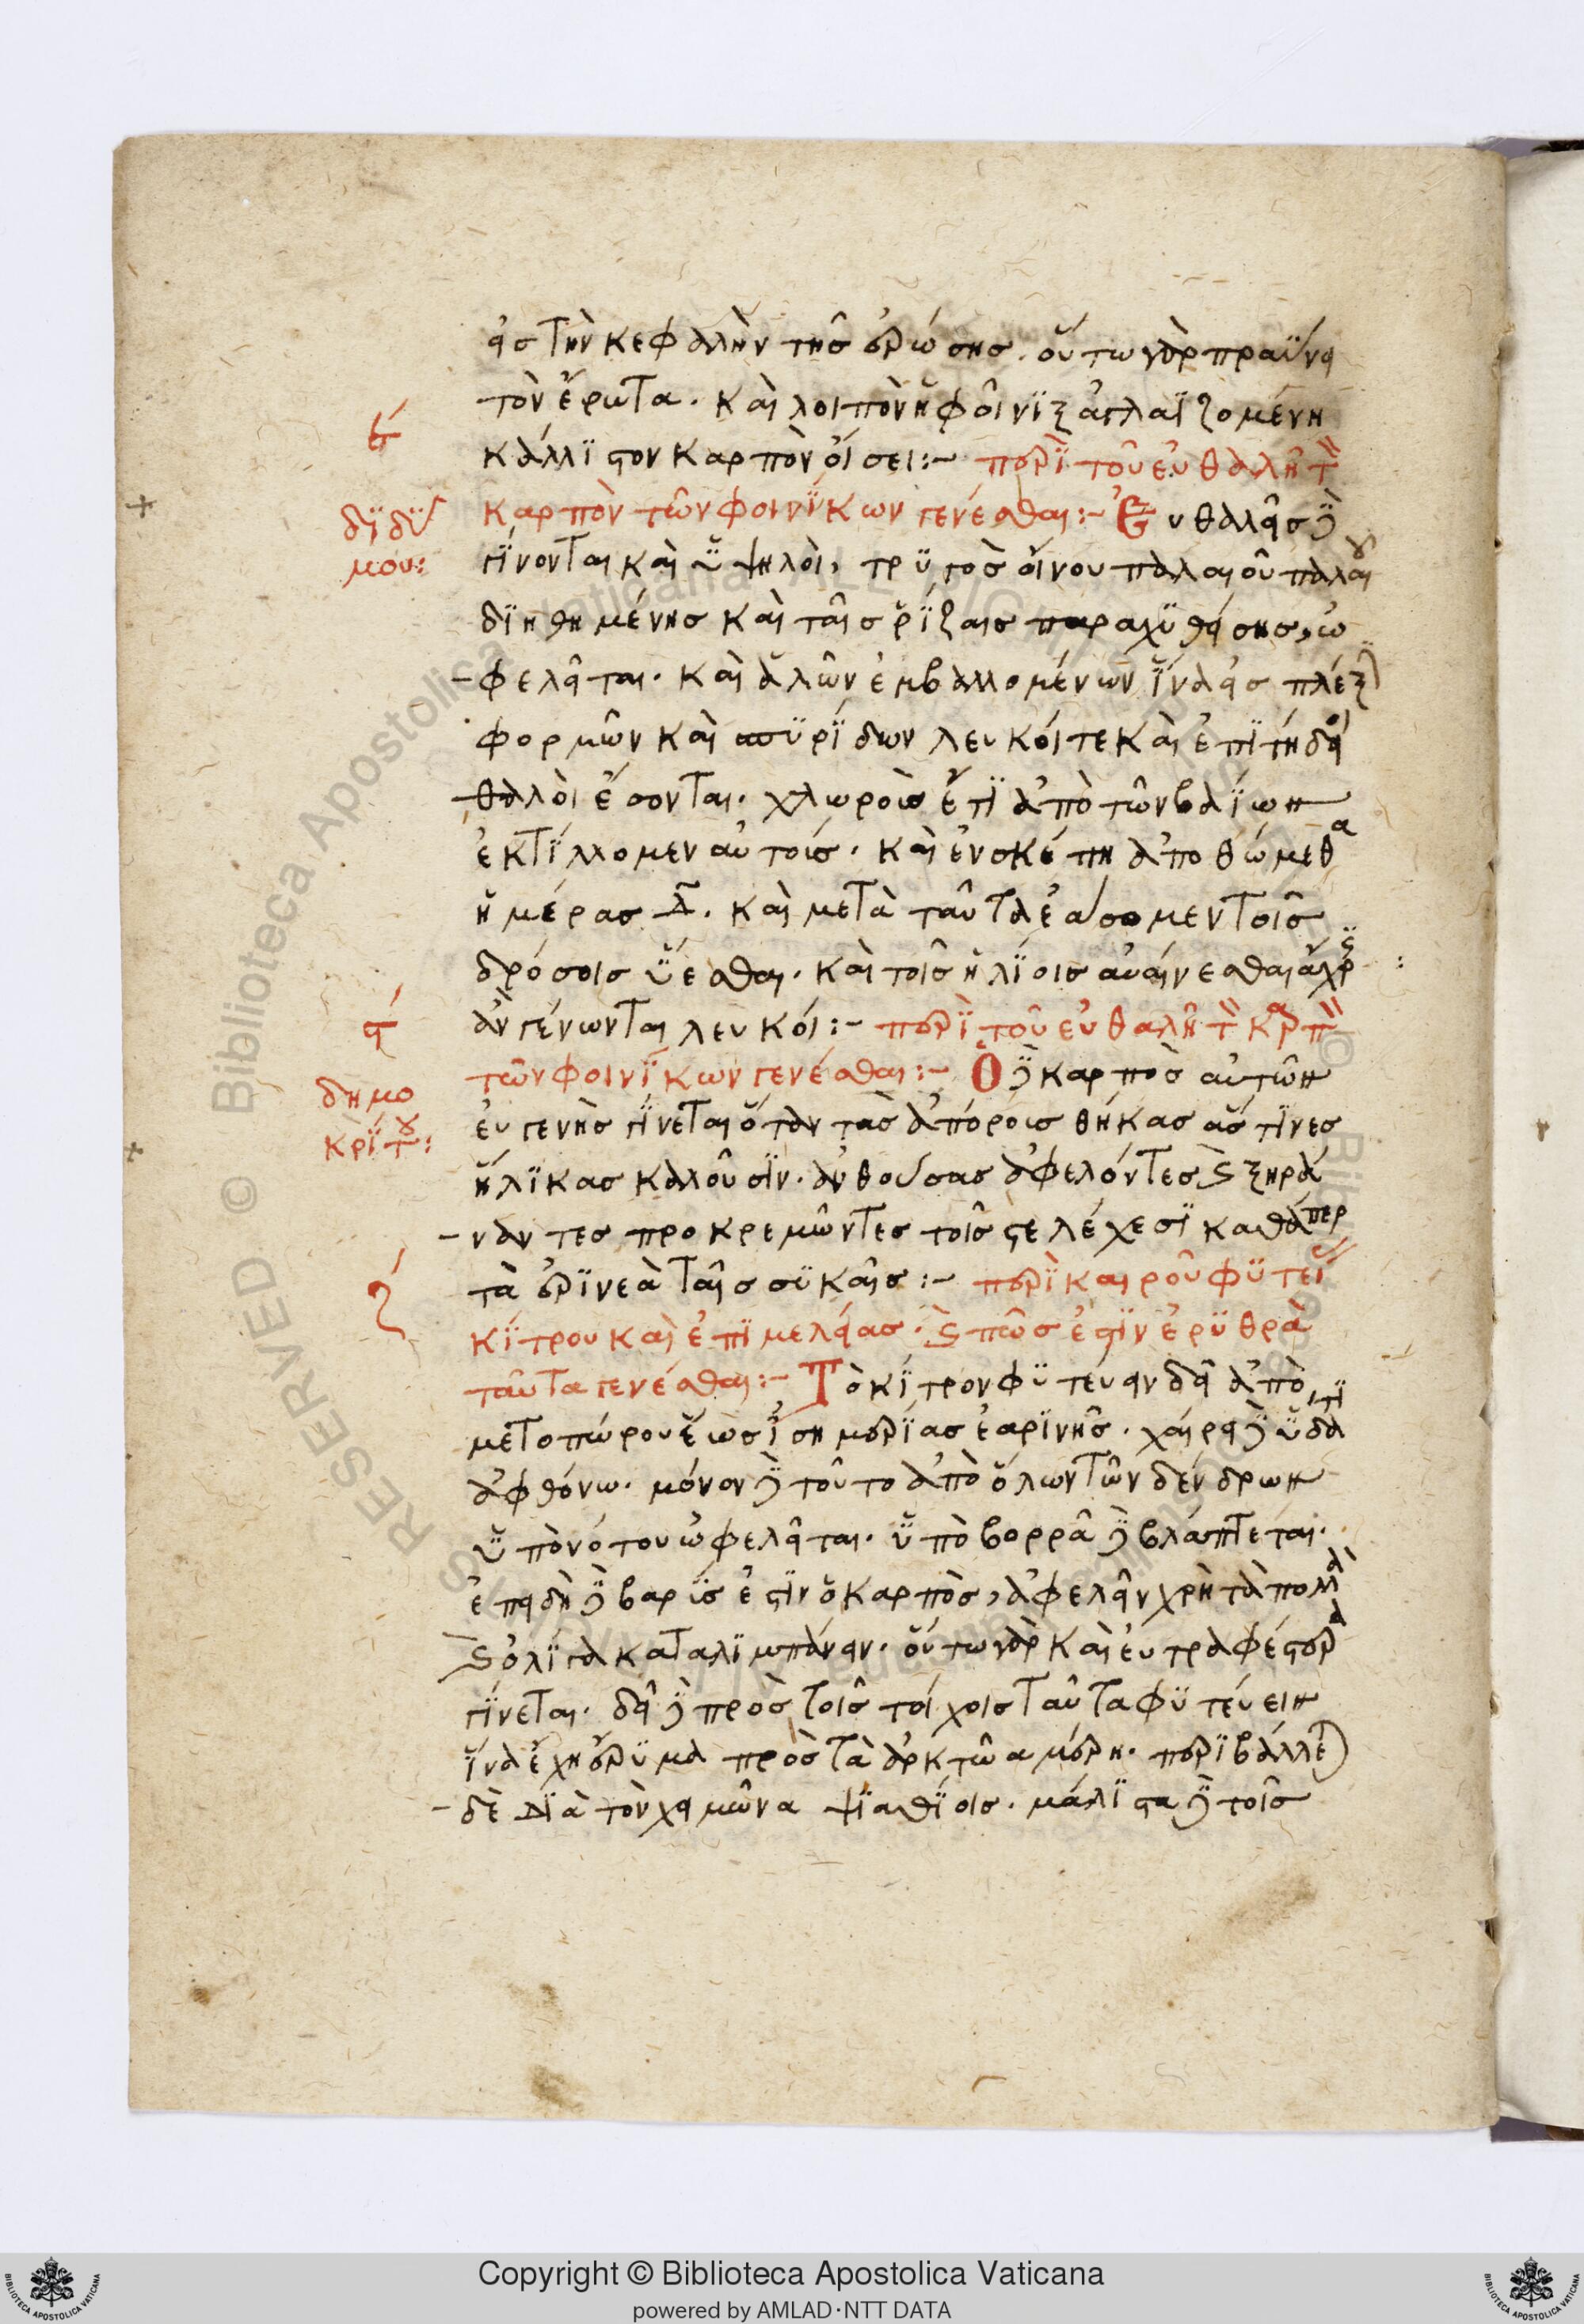 εἰς τὴν κεφαλὴν τῆς ἐρώσης. οὕτω γὰρ πραΰνει
τὸν ἔρωτα. καὶ λοιπὸν ἡ φοῖνιξ ἀγλαϊζομένη
ε´
κάλλιστον καρπὸν οἴσει:- περὶ τοῦ εὐθαλῆ τὸν
διδύ
μου:
καρπὸν τῶν φοινίκων γενέσθαι:- Εὐθαλεῖς δὲ
γίνονται καὶ ὑψηλοὶ, τρυγὸς οἴνου παλαιοῦ παλαιοῦ
διηθημένης καὶ ταῖς ῥίζαις παραχυθείσης, ὠ
φελεῖται. καὶ ἁλῶν ἐμβαλλομένων ἵνα εἰς πλέξιν
φορμῶν καὶ σπυρίδων λευκοί τε καὶ ἐπιτήδειοι
θαλοὶ ἔσονται. χλωροὺς ἔτι ἀπὸ τῶν βαΐων
ἐκτίλλομεν αὐτούς. καὶ ἐν σκέπη ἀποθώμεθα
ἡμέρας δ. καὶ μετὰ ταῦτα ἐάσομεν τοῖς
δρόσοις ὕεσθαι. καὶ τοῖς ἡλίοις αὐαίνεσθαι ἄχρις
ϛ´
ἂν γένωνται λευκοί:- περὶ τοῦ εὐθαλῆ τὸν καρπὸν
δημο
κρίτου:
τῶν φοινίκων γενέσθαι:- Ὁ δὲ καρπὸς αὐτῶν
εὐγενὴς γίνεται ὅταν τὰς ἀπόρους θήκας ἅς τινες
ἥλικας καλοῦσιν. ἀνθούσας ἀφελόντες καὶ ξηρά
ναντες προκρεμῶντες τοῖς στελέχεσι καθάπερ
ζ´
τὰ ἐρινεὰ ταῖς συκαῖς:- περὶ καιροῦ φυτείας
κίτρου καὶ ἐπιμελείας. καὶ πῶς ἐστὶν ἐρυθρὰ
ταῦτα γενέσθαι:- Τὸ κίτρον φυτεύειν δεῖ ἀπὸ
μετοπώρου ἕως ἰσημερίας ἐαρινῆς. χαίρει δὲ ὕδατι
ἀφθόνω. μόνον δὲ τοῦτο ἀπὸ ὅλων τῶν δένδρων
ὑπὸ νότου ὠφελεῖται. ὑπὸ βορρᾶ δὲ βλάπτεται.
ἐπειδὴ δὲ βαρὺς ἐστὶν ὁ καρπὸς, ἀφελεῖν χρὴ τὰ πολλὰ
καὶ ὀλίγα καταλιμπάνειν. οὕτω γὰρ καὶ εὐτραφέστερα
γίνεται. δεῖ δὲ πρὸς τοῖς τοίχοις ταῦτα φυτεύειν
ἵνα ἔχη ἔρυμα πρὸς τὰ ἀρκτῶα μέρη. περιβάλλειν
δὲ διὰ τὸν χειμῶνα ψιαθίοις. μάλιστα δὲ τοῖς
Copyright © Biblioteca Apostolica Vaticana
powered by AMLAD·NTT DATA